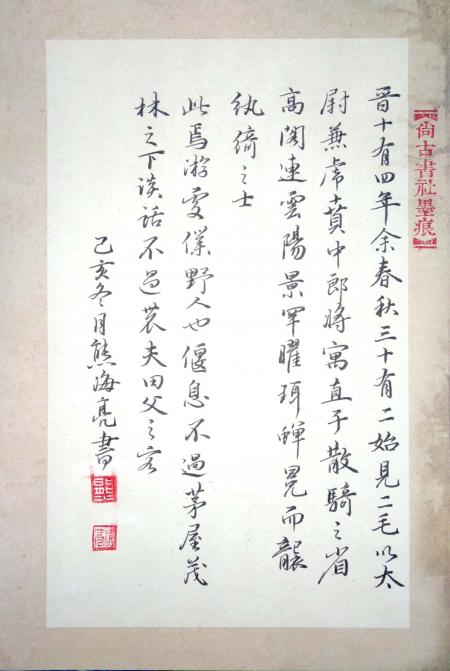 【尚古書社墨痕】
晉十有四年余春秋三十有二始見二毛以太
尉兼虎賁中郎將寓直于散騎之省
高閣連雲陽景罕曜珥蟬冕而襲
紈綺之士
此焉游處僕野人也偃息不過茅屋茂
林之下談話不過農夫田父之客
己亥冬月熊海亮書